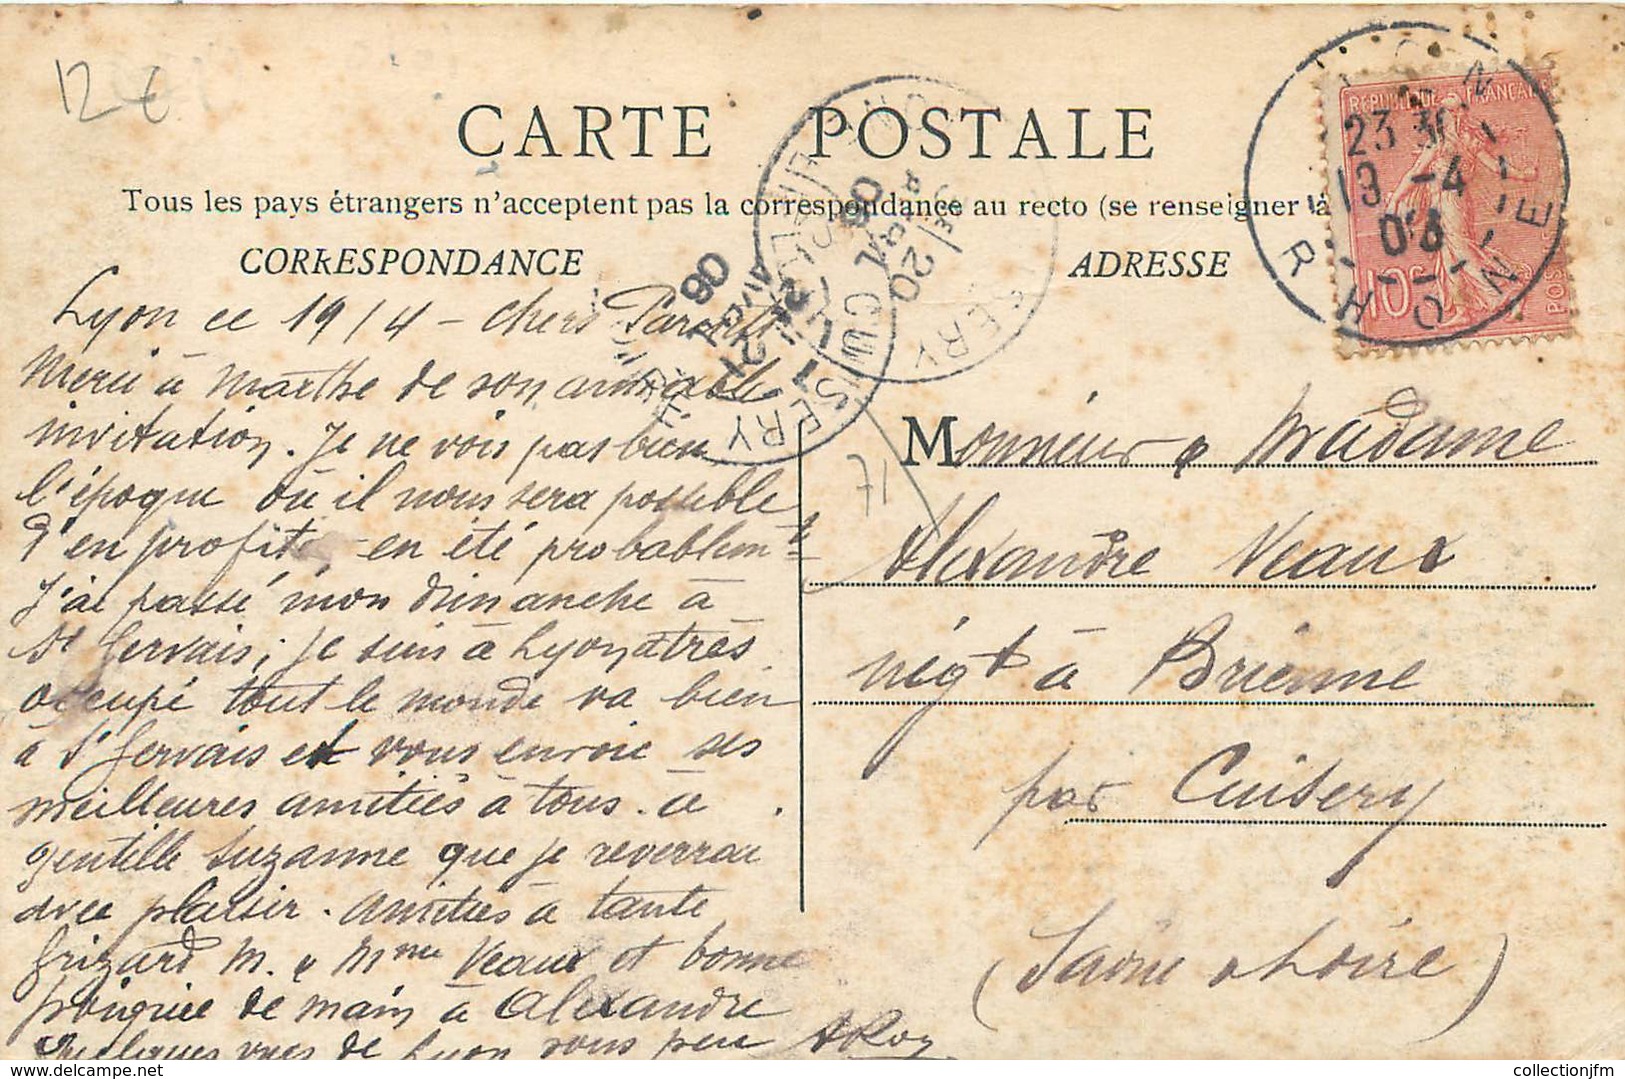 12 €
CARTE POSTALE
Tous les pays étrangers n'acceptent pas la correspondance au recto (se renseigner à
CORRESPONDANCE
ADRESSE
REPUBLIQUE FRANÇAISE
10c
POSTES
LYON
RHONE
23 30
19 -4
06
CUISERY
20
AVRIL
06
CUISERY
21
AVRIL
06
Lyon ce 19/4 - Chers Parents
Merci à Marthe de son aimable
invitation. Je ne vois pas bien
l'époque où il nous sera possible
d'en profiter - en été probablemt
J'ai passé mon dimanche à
St Gervais; je suis à Lyon très
occupé tout le monde va bien
à St Gervais et vous envoie ses
meilleures amitiés à tous. à
gentille Suzanne que je reverrai
avec plaisir. Amitiés à tante
Grizard M. & Mme Veaux et bonne
poignée de main à Alexandre
Quelques vues de Lyon sous peu ARoy
17
Monsieur & Madame
Alexandre Veaux
négt à Brienne
par Cuisery
(Saône & Loire)
www.delcampe.net
collectionjfm